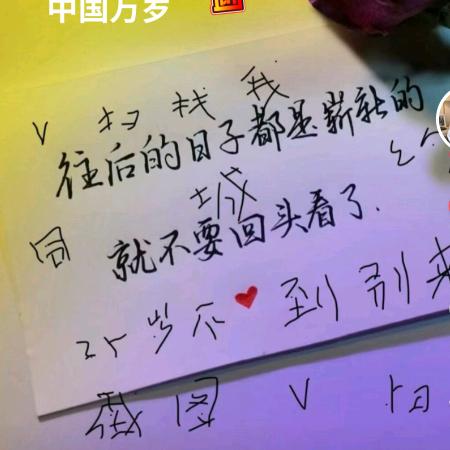 中国万岁
V 扫 找 我
往后的日子都是崭新的
城
同
就不要回头看了.
25岁不到别来
截图 V